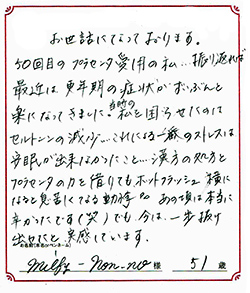 お世話になっております。
50回目のプラセンタ愛用の私…振り返れば
最近は更年期の症状がずいぶんと
楽になってきました。当時の私を困らせたのは
セロトニンの減少…これによる一番のストレスは
安眠が出来なかったこと…漢方の処方と
プラセンタの力を借りてもホットフラッシュ 横に
なると息苦しくなる動悸 あの頃は本当に
辛かったです(笑)でも、今は、一歩抜け
出せたと実感しています。
お名前(本名orペンネーム)
Milfy-Non-no 様 51歳